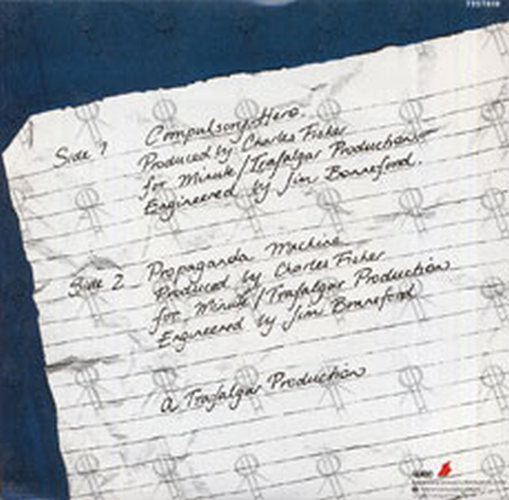 Side 1 Compulsory Hero.
Produced by Charles Fisher
for Minute/Trafalgar Productions
Engineered by Jim Bonneford.
Side 2 Propaganda Machine
Produced by Charles Fisher
for Minute/Trafalgar Production
Engineered by Jim Bonneford
a Trafalgar Production